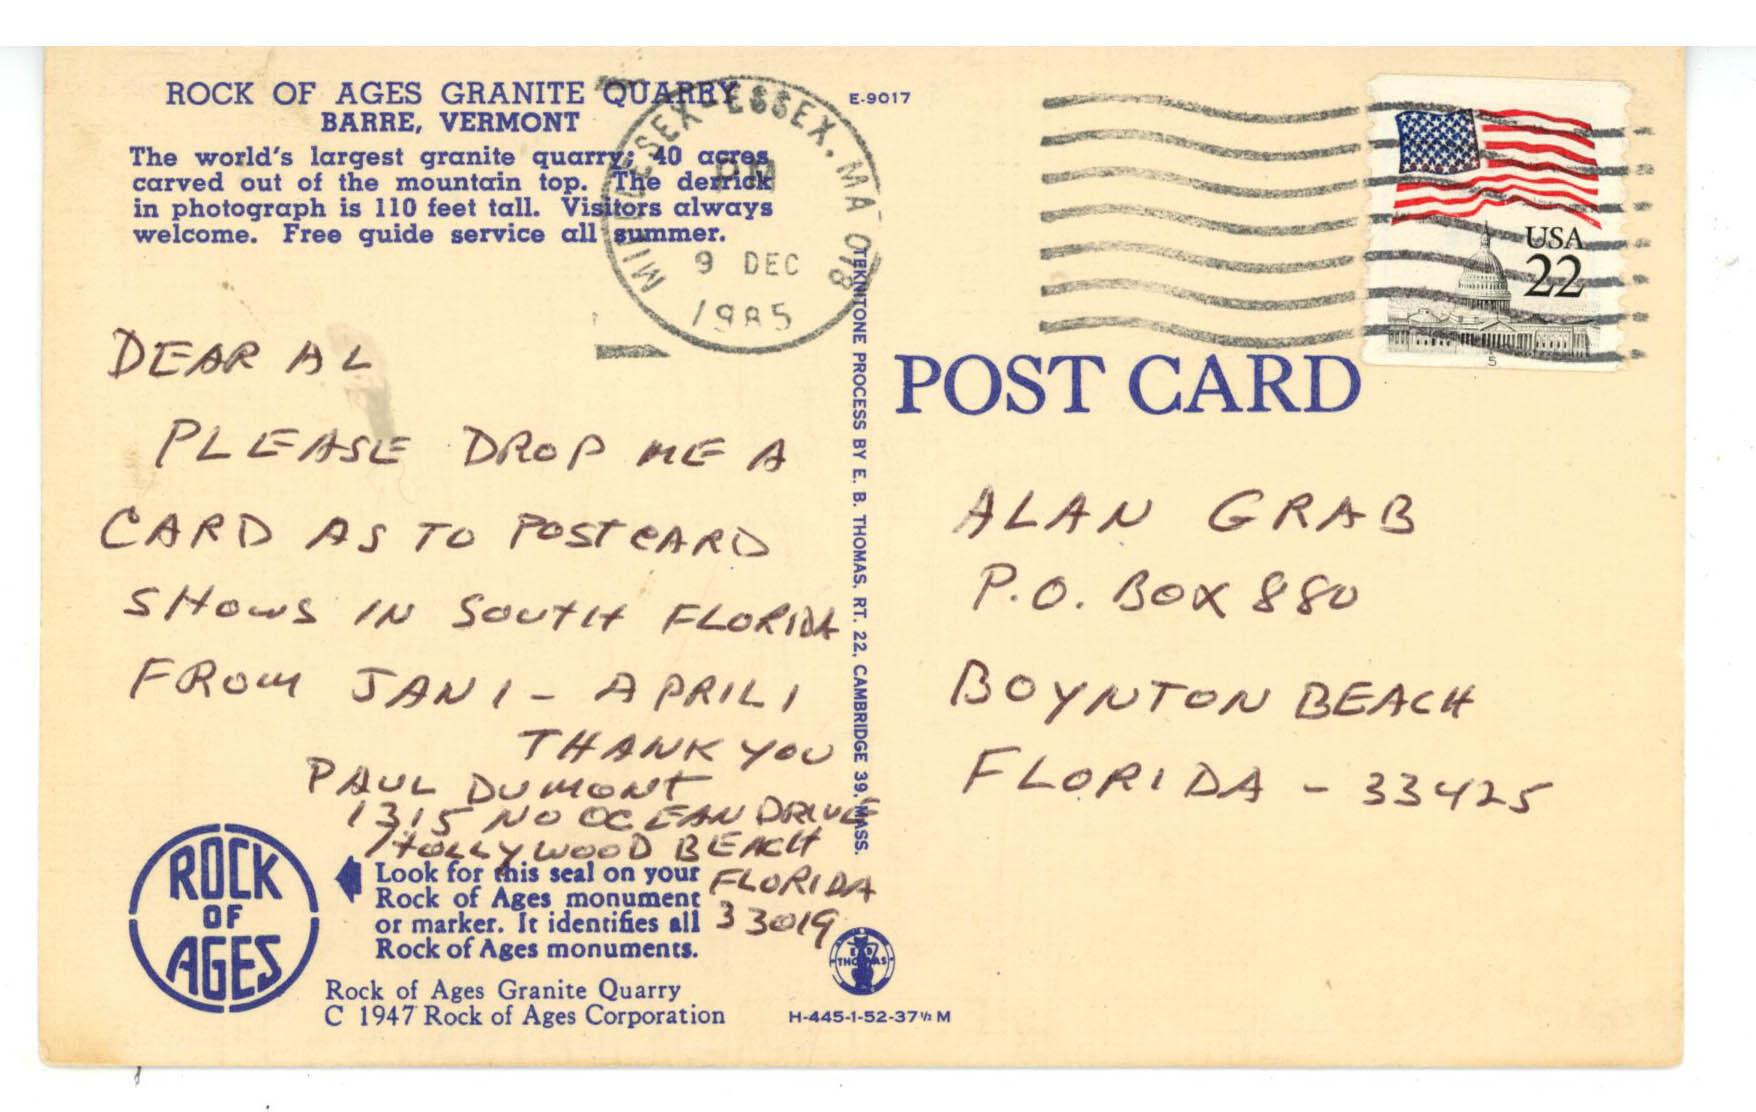 ROCK OF AGES GRANITE QUARRY
BARRE, VERMONT
The world's largest granite quarry; 40 acres
carved out of the mountain top. The derrick
in photograph is 110 feet tall. Visitors always
welcome. Free guide service all summer.
E-9017
MIDDLESEX-ESSEX, MA 018
PM
9 DEC
1985
USA
22
5
POST CARD
DEAR AL
PLEASE DROP ME A
CARD AS TO POSTCARD
SHOWS IN SOUTH FLORIDA
FROM JAN 1 - APRIL 1
THANK YOU
PAUL DUMONT
1315 NO OCEAN DRIVE
HOLLYWOOD BEACH
FLORIDA
33019
TEKNITONE PROCESS BY E. B. THOMAS, RT. 22, CAMBRIDGE 39, MASS.
ALAN GRAB
P.O. BOX 880
BOYNTON BEACH
FLORIDA - 33425
ROCK
OF
AGES
Look for this seal on your
Rock of Ages monument
or marker. It identifies all
Rock of Ages monuments.
Rock of Ages Granite Quarry
C 1947 Rock of Ages Corporation
E B
THOMAS
H-445-1-52-37½ M